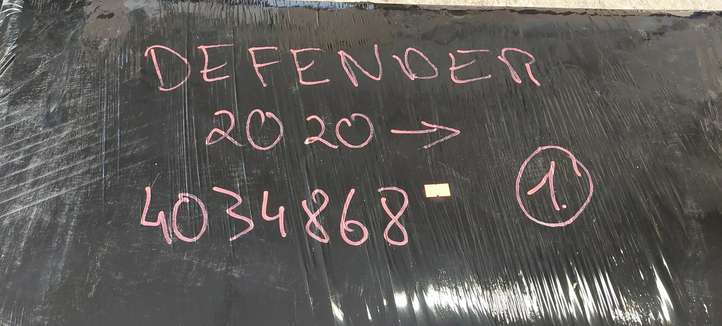 DEFENDER
2020 →
4034868
1.